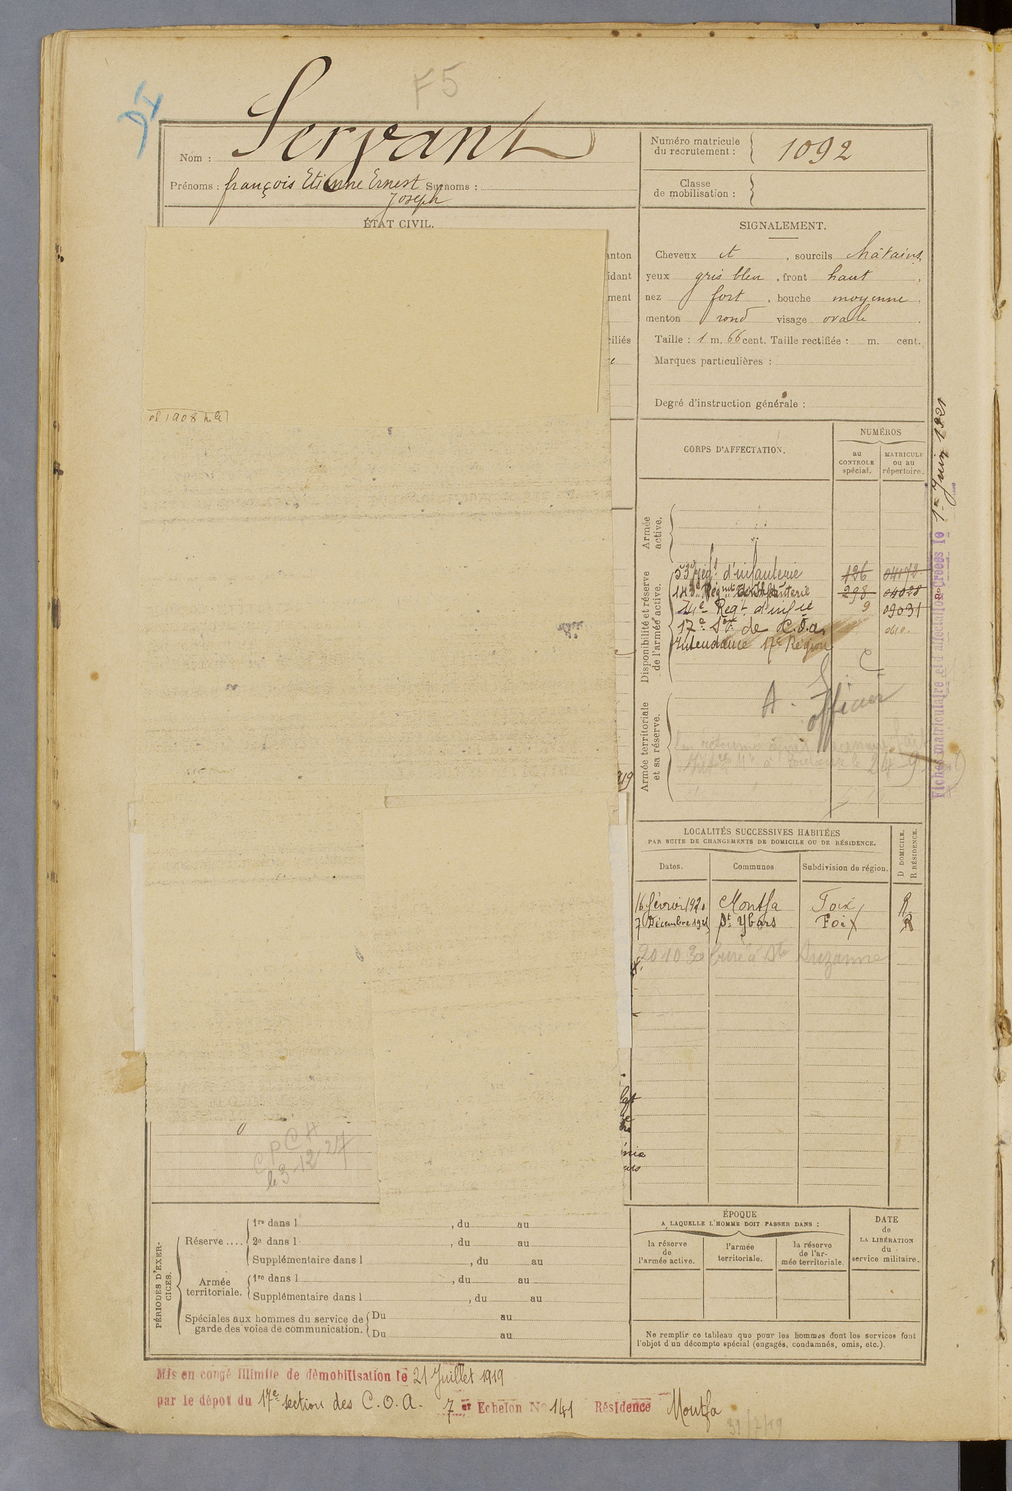 F5
Nom : Servant
Prénoms : françois Etienne Ernest Surnoms :
Joseph
Numéro matricule du recrutement : 1092
Classe de mobilisation :
ÉTAT CIVIL.
SIGNALEMENT.
Cheveux et , sourcils châtains,
yeux gris bleu , front haut ,
nez fort , bouche moyenne ,
menton rond visage ovale .
Taille : 1 m. 66 cent. Taille rectifiée : m. cent.
Marques particulières :
Degré d'instruction générale :
anton
idant
ment
ciliés
CORPS D'AFFECTATION.
NUMÉROS
au CONTROLE spécial.
MATRICULE ou au répertoire.
Armée active.
Disponibilité et réserve de l'armée active.
53e Régt d'infanterie 126
298
24e Régt d'inf ie 9 03031
17e Son de C.O.a.
Intendance 17e Région
Armée territoriale et sa réserve.
A. officier
Fiches matriculaire et d'affectation créées le 1er Juin 1921
LOCALITÉS SUCCESSIVES HABITÉES
PAR SUITE DE CHANGEMENTS DE DOMICILE OU DE RÉSIDENCE.
Dates. Communes Subdivision de région.
D DOMICILE. R RÉSIDENCE.
16 février 1920 Montfa Foix R
7 Décembre 1925 St Ybars Foix R
20 10 30 curé à Ste Suzanne
C P C A
le 3-12-27
PÉRIODES D'EXERCICES.
Réserve ....
1re dans l , du au
2e dans l , du au
Supplémentaire dans l , du au
Armée territoriale.
1re dans l , du au
Supplémentaire dans l , du au
Spéciales aux hommes du service de garde des voies de communication.
Du au
Du au
ÉPOQUE
A LAQUELLE L'HOMME DOIT PASSER DANS :
la réserve de l'armée active.
l'armée territoriale.
la réserve de l'armée territoriale.
DATE de LA LIBÉRATION du service militaire.
Ne remplir ce tableau que pour les hommes dont les services font
l'objet d'un décompte spécial (engagés, condamnés, omis, etc.).
Mis en congé illimité de démobilisation le 21 Juillet 1919
par le dépot du 17e section des C.O.A. 7 e Echelon No 141 Résidence Montfa
31/7/19